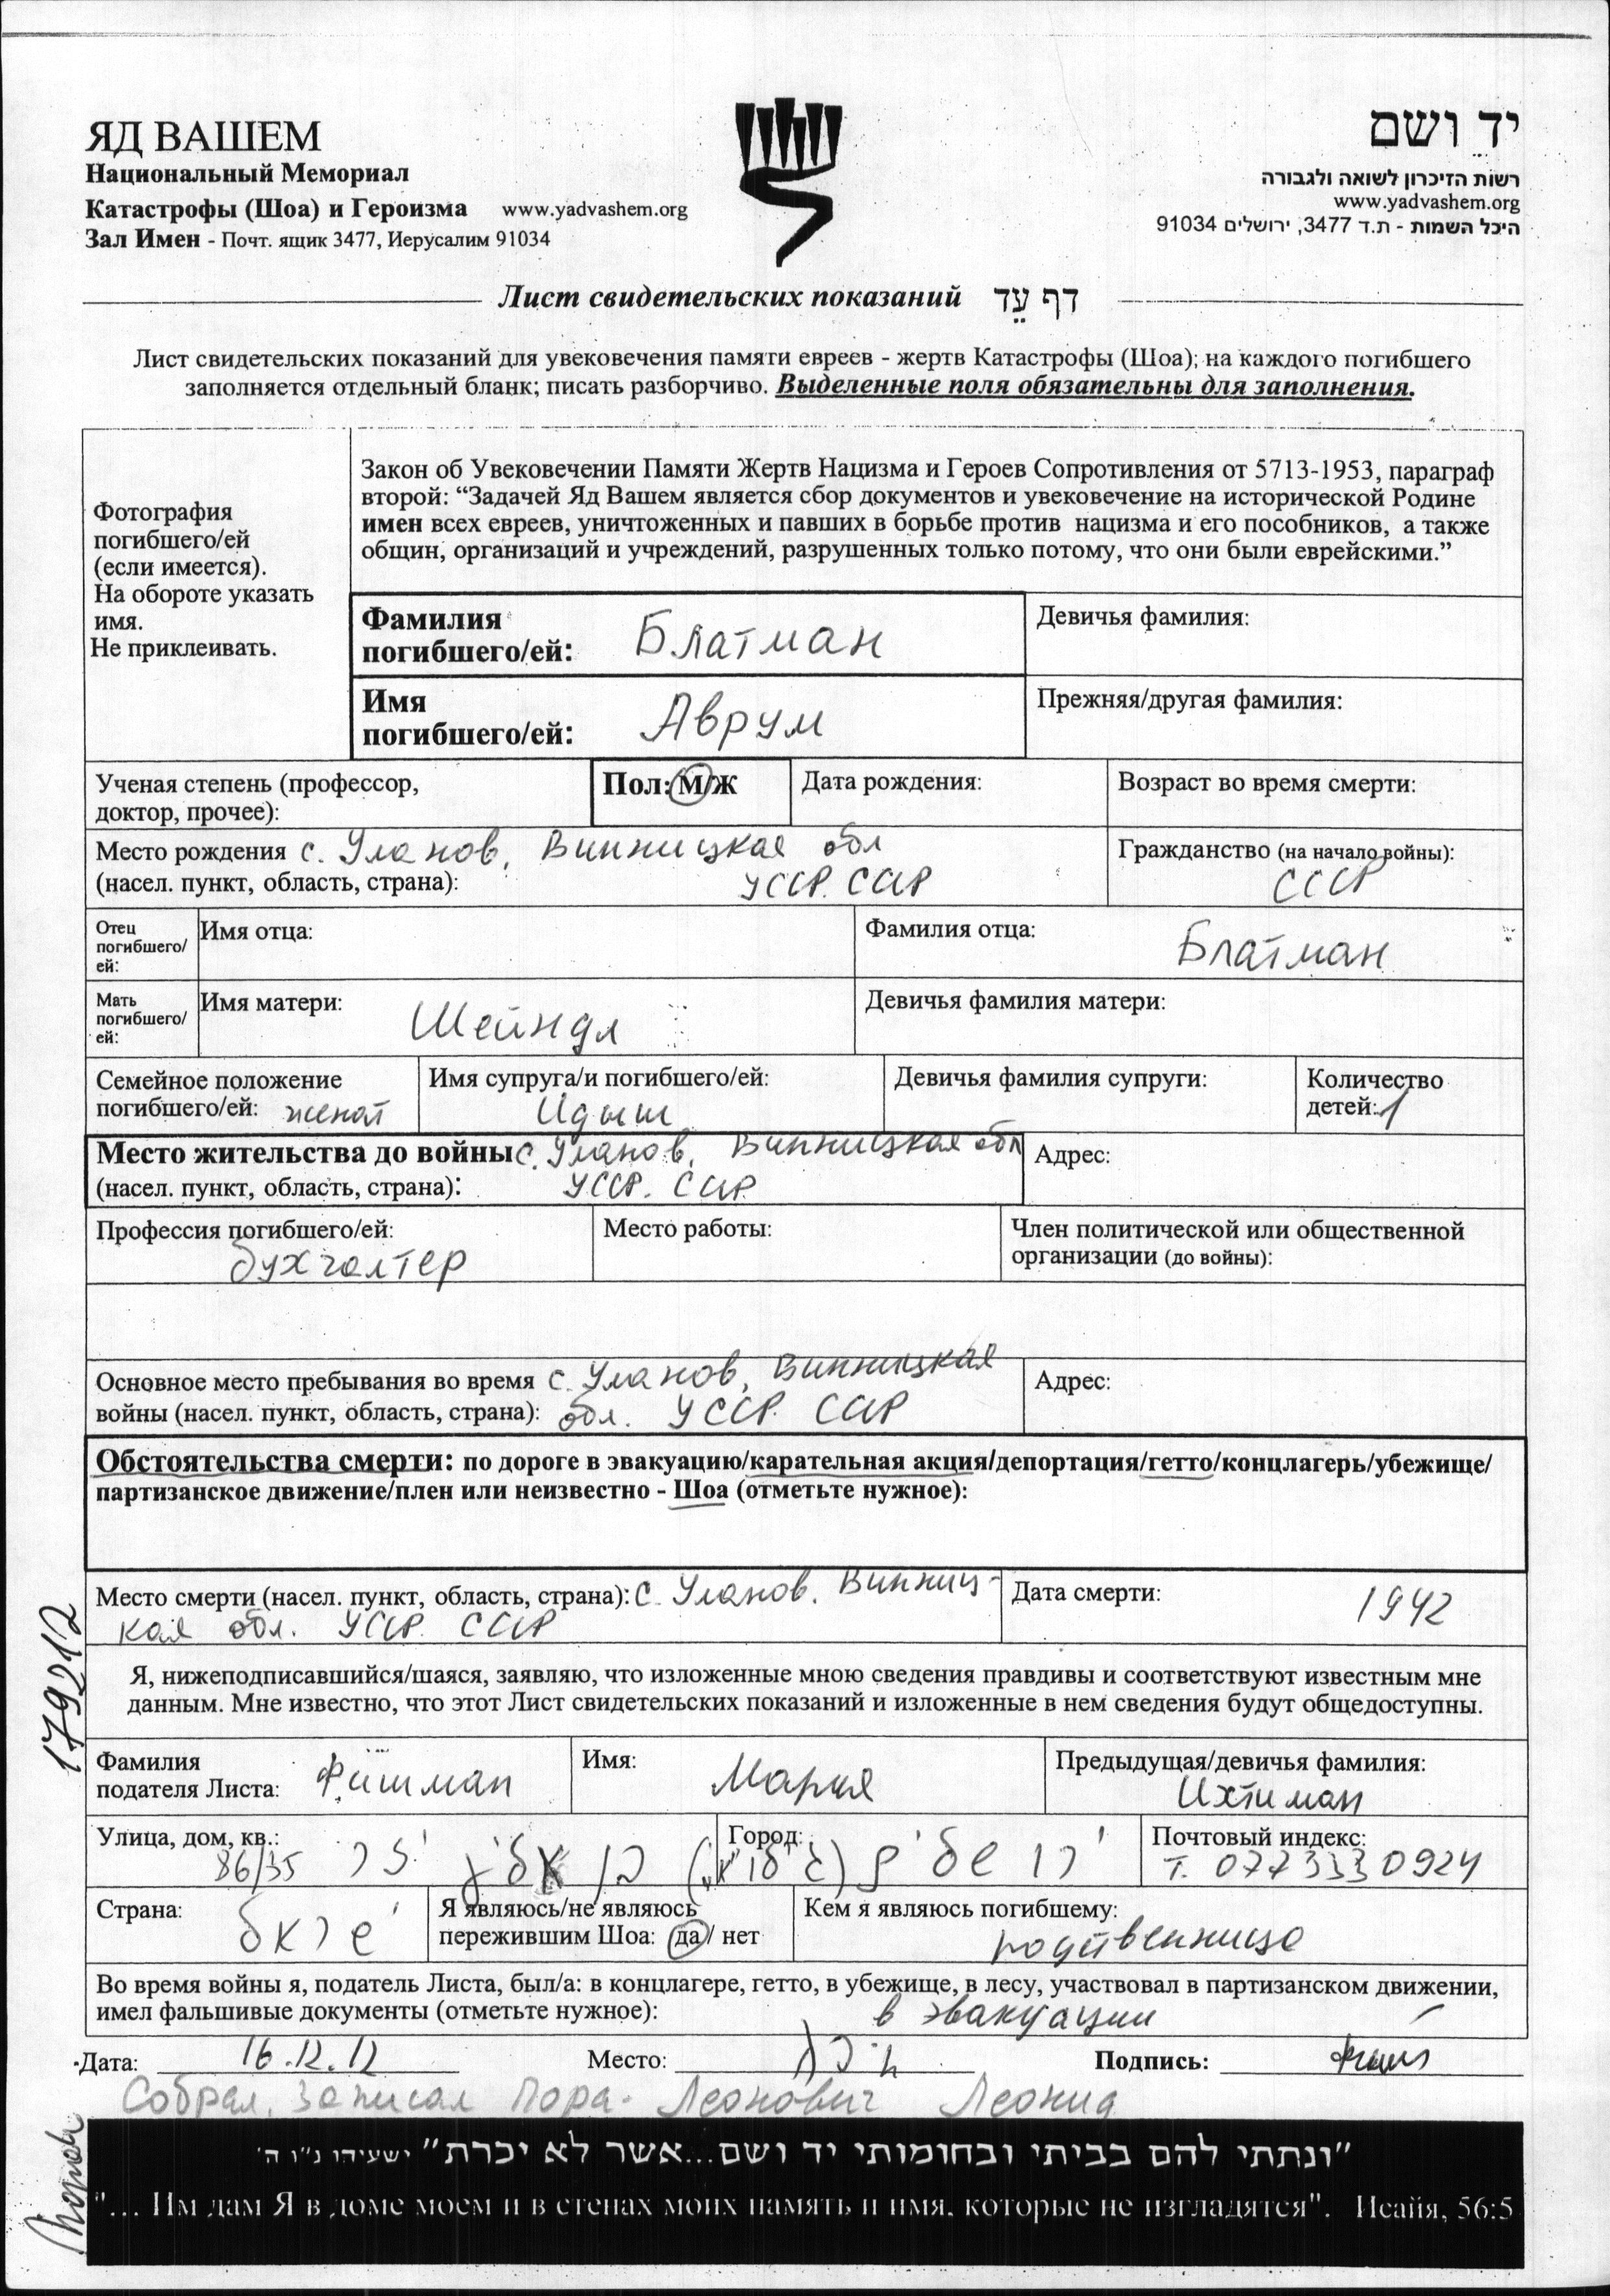 ЯД ВАШЕМ
Национальный Мемориал
Катастрофы (Шоа) и Героизма www.yadvashem.org
Зал Имен - Почт. ящик 3477, Иерусалим 91034
יד ושם
רשות הזיכרון לשואה ולגבורה
www.yadvashem.org
היכל השמות - ת.ד 3477, ירושלים 91034
Лист свидетельских показаний דף עֵד
Лист свидетельских показаний для увековечения памяти евреев - жертв Катастрофы (Шоа); на каждого погибшего
заполняется отдельный бланк; писать разборчиво. Выделенные поля обязательны для заполнения.
Фотография
погибшего/ей
(если имеется).
На обороте указать
имя.
Не приклеивать.
Закон об Увековечении Памяти Жертв Нацизма и Героев Сопротивления от 5713-1953, параграф
второй: “Задачей Яд Вашем является сбор документов и увековечение на исторической Родине
имен всех евреев, уничтоженных и павших в борьбе против нацизма и его пособников, а также
общин, организаций и учреждений, разрушенных только потому, что они были еврейскими.”
Фамилия
погибшего/ей: Блатман
Девичья фамилия:
Имя
погибшего/ей: Аврум
Прежняя/другая фамилия:
Ученая степень (профессор,
доктор, прочее):
Пол: М/Ж
Дата рождения:
Возраст во время смерти:
Место рождения с. Уланов, Винницкая обл
(насел. пункт, область, страна): УССР. СССР
Гражданство (на начало войны):
СССР
Отец
погибшего/
ей:
Имя отца:
Фамилия отца:
Блатман
Мать
погибшего/
ей:
Имя матери:
Шейндл
Девичья фамилия матери:
Семейное положение
погибшего/ей: женат
Имя супруга/и погибшего/ей:
Идыш
Девичья фамилия супруги:
Количество
детей: 1
Место жительства до войны с. Уланов, Винницкая обл
(насел. пункт, область, страна): УССР. СССР
Адрес:
Профессия погибшего/ей:
бухгалтер
Место работы:
Член политической или общественной
организации (до войны):
Основное место пребывания во время с. Уланов, Винницкая
войны (насел. пункт, область, страна): обл. УССР. СССР
Адрес:
Обстоятельства смерти: по дороге в эвакуацию/карательная акция/депортация/гетто/концлагерь/убежище/
партизанское движение/плен или неизвестно - Шоа (отметьте нужное):
Место смерти (насел. пункт, область, страна): с. Уланов. Винниц-
кая обл. УССР. СССР
Дата смерти:
1942
179212
Я, нижеподписавшийся/шаяся, заявляю, что изложенные мною сведения правдивы и соответствуют известным мне
данным. Мне известно, что этот Лист свидетельских показаний и изложенные в нем сведения будут общедоступны.
Фамилия
подателя Листа: Фишман
Имя:
Мария
Предыдущая/девичья фамилия:
Ихтиман
Улица, дом, кв.:
86/35
Город:
ירושלים
Почтовый индекс:
т. 0773330924
Страна:
ישראל
Я являюсь/не являюсь
пережившим Шоа: да / нет
Кем я являюсь погибшему:
родственница
Во время войны я, податель Листа, был/а: в концлагере, гетто, в убежище, в лесу, участвовал в партизанском движении,
имел фальшивые документы (отметьте нужное): в эвакуации
Дата: 16.12.12
Место:
Подпись:
Собрал, записал Пора- Леонович Леонид
"ונתתי להם בביתי ובחומותי יד ושם...אשר לא יכרת" ישעיהו נ"ו ה'
"... Им дам Я в доме моем и в стенах моих память и имя, которые не изгладятся". Исайя, 56:5